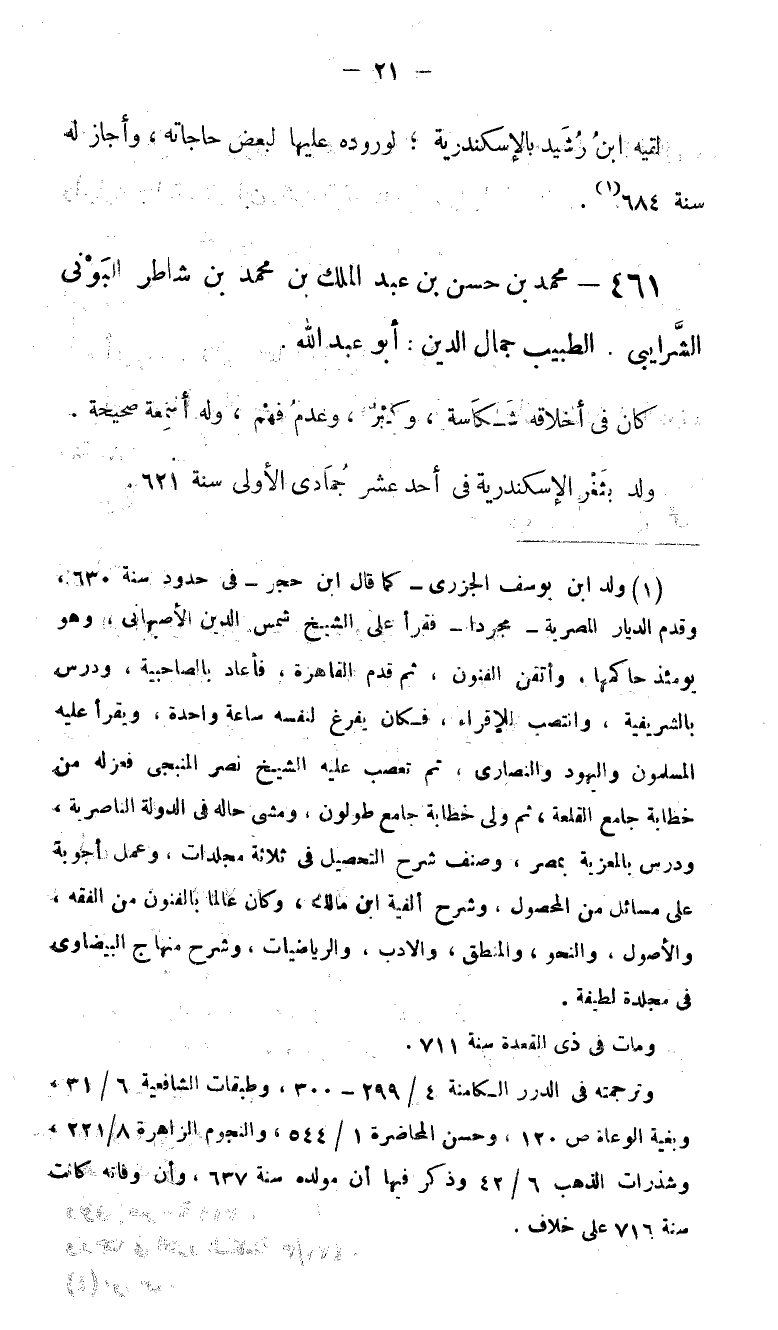 — ٢١ —
لقيه ابنُ رُشَيد بالإسكندرية ؛ لوروده عليها لبعض حاجاته ، وأجاز له
سنة ٦٨٤(١) .
٤٦١ — محمد بن حسن بن عبد الملك بن محمد بن شاطر البَوْنى
الشَّرايبى . الطبيب جمال الدين : أبو عبد الله .
كان فى أخلاقه شَكَاسة ، وكِبْرٌ ، وعدمُ فهْم ، وله أسْمِعة صحيحة .
ولد بثَغْر الإسكندرية فى أحد عشر جُمَادى الأولى سنة ٦٢١ .
(١) ولد ابن يوسف الجزرى – كما قال ابن حجر – فى حدود سنة ٦٣٠ ،
وقدم الديار المصرية – مجردا – فقرأ على الشيخ شمس الدين الأصبهانى ، وهو
يومئذ حاكمها . وأتقن الفنون ، ثم قدم القاهرة ، فأعاد بالصاحبية ، ودرس
بالشريفية ، وانتصب للإقراء ، فكان يفرغ لنفسه ساعة واحدة ، ويقرأ عليه
المسلمون واليهود والنصارى ، ثم تعصب عليه الشيخ نصر المنبجى فعزله من
خطابة جامع القلعة ، ثم ولى خطابة جامع طولون ، ومشى حاله فى الدولة الناصرية ،
ودرس بالمعزية بمصر ، وصنف شرح التحصيل فى ثلاثة مجلدات ، وعمل أجوبة
على مسائل من المحصول ، وشرح ألفية ابن مالك ، وكان عالما بالفنون من الفقه ،
والأصول ، والنحو ، والمنطق ، والادب ، والرياضيات ، وشرح منهاج البيضاوى
فى مجلدة لطيفة .
ومات فى ذى القعدة سنة ٧١١ .
وترجمته فى الدرر الكامنة ٤ / ٢٩٩ – ٣٠٠ ، وطبقات الشافعية ٦ / ٣١ ،
وبغية الوعاة ص ١٢٠ ، وحسن المحاضرة ١ / ٥٤٤ ، والنجوم الزاهرة ٨/٢٢١ ،
وشذرات الذهب ٦ / ٤٢ وذكر فيها أن مولده سنة ٦٣٧ ، وأن وفاته كانت
سنة ٧١٦ على خلاف .